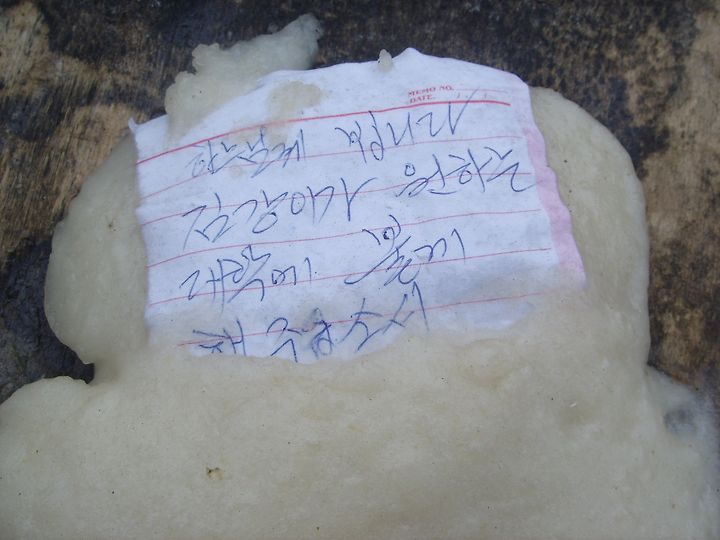 MEMO NO.
DATE.
빕니다
김강이가 원하는
대학에 붙게
해 주옵소서